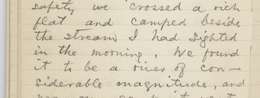 safety we crossed a rich
flat and camped beside
the stream I had sighted
in the morning. We found
it to be a river of con-
siderable magnitude, and